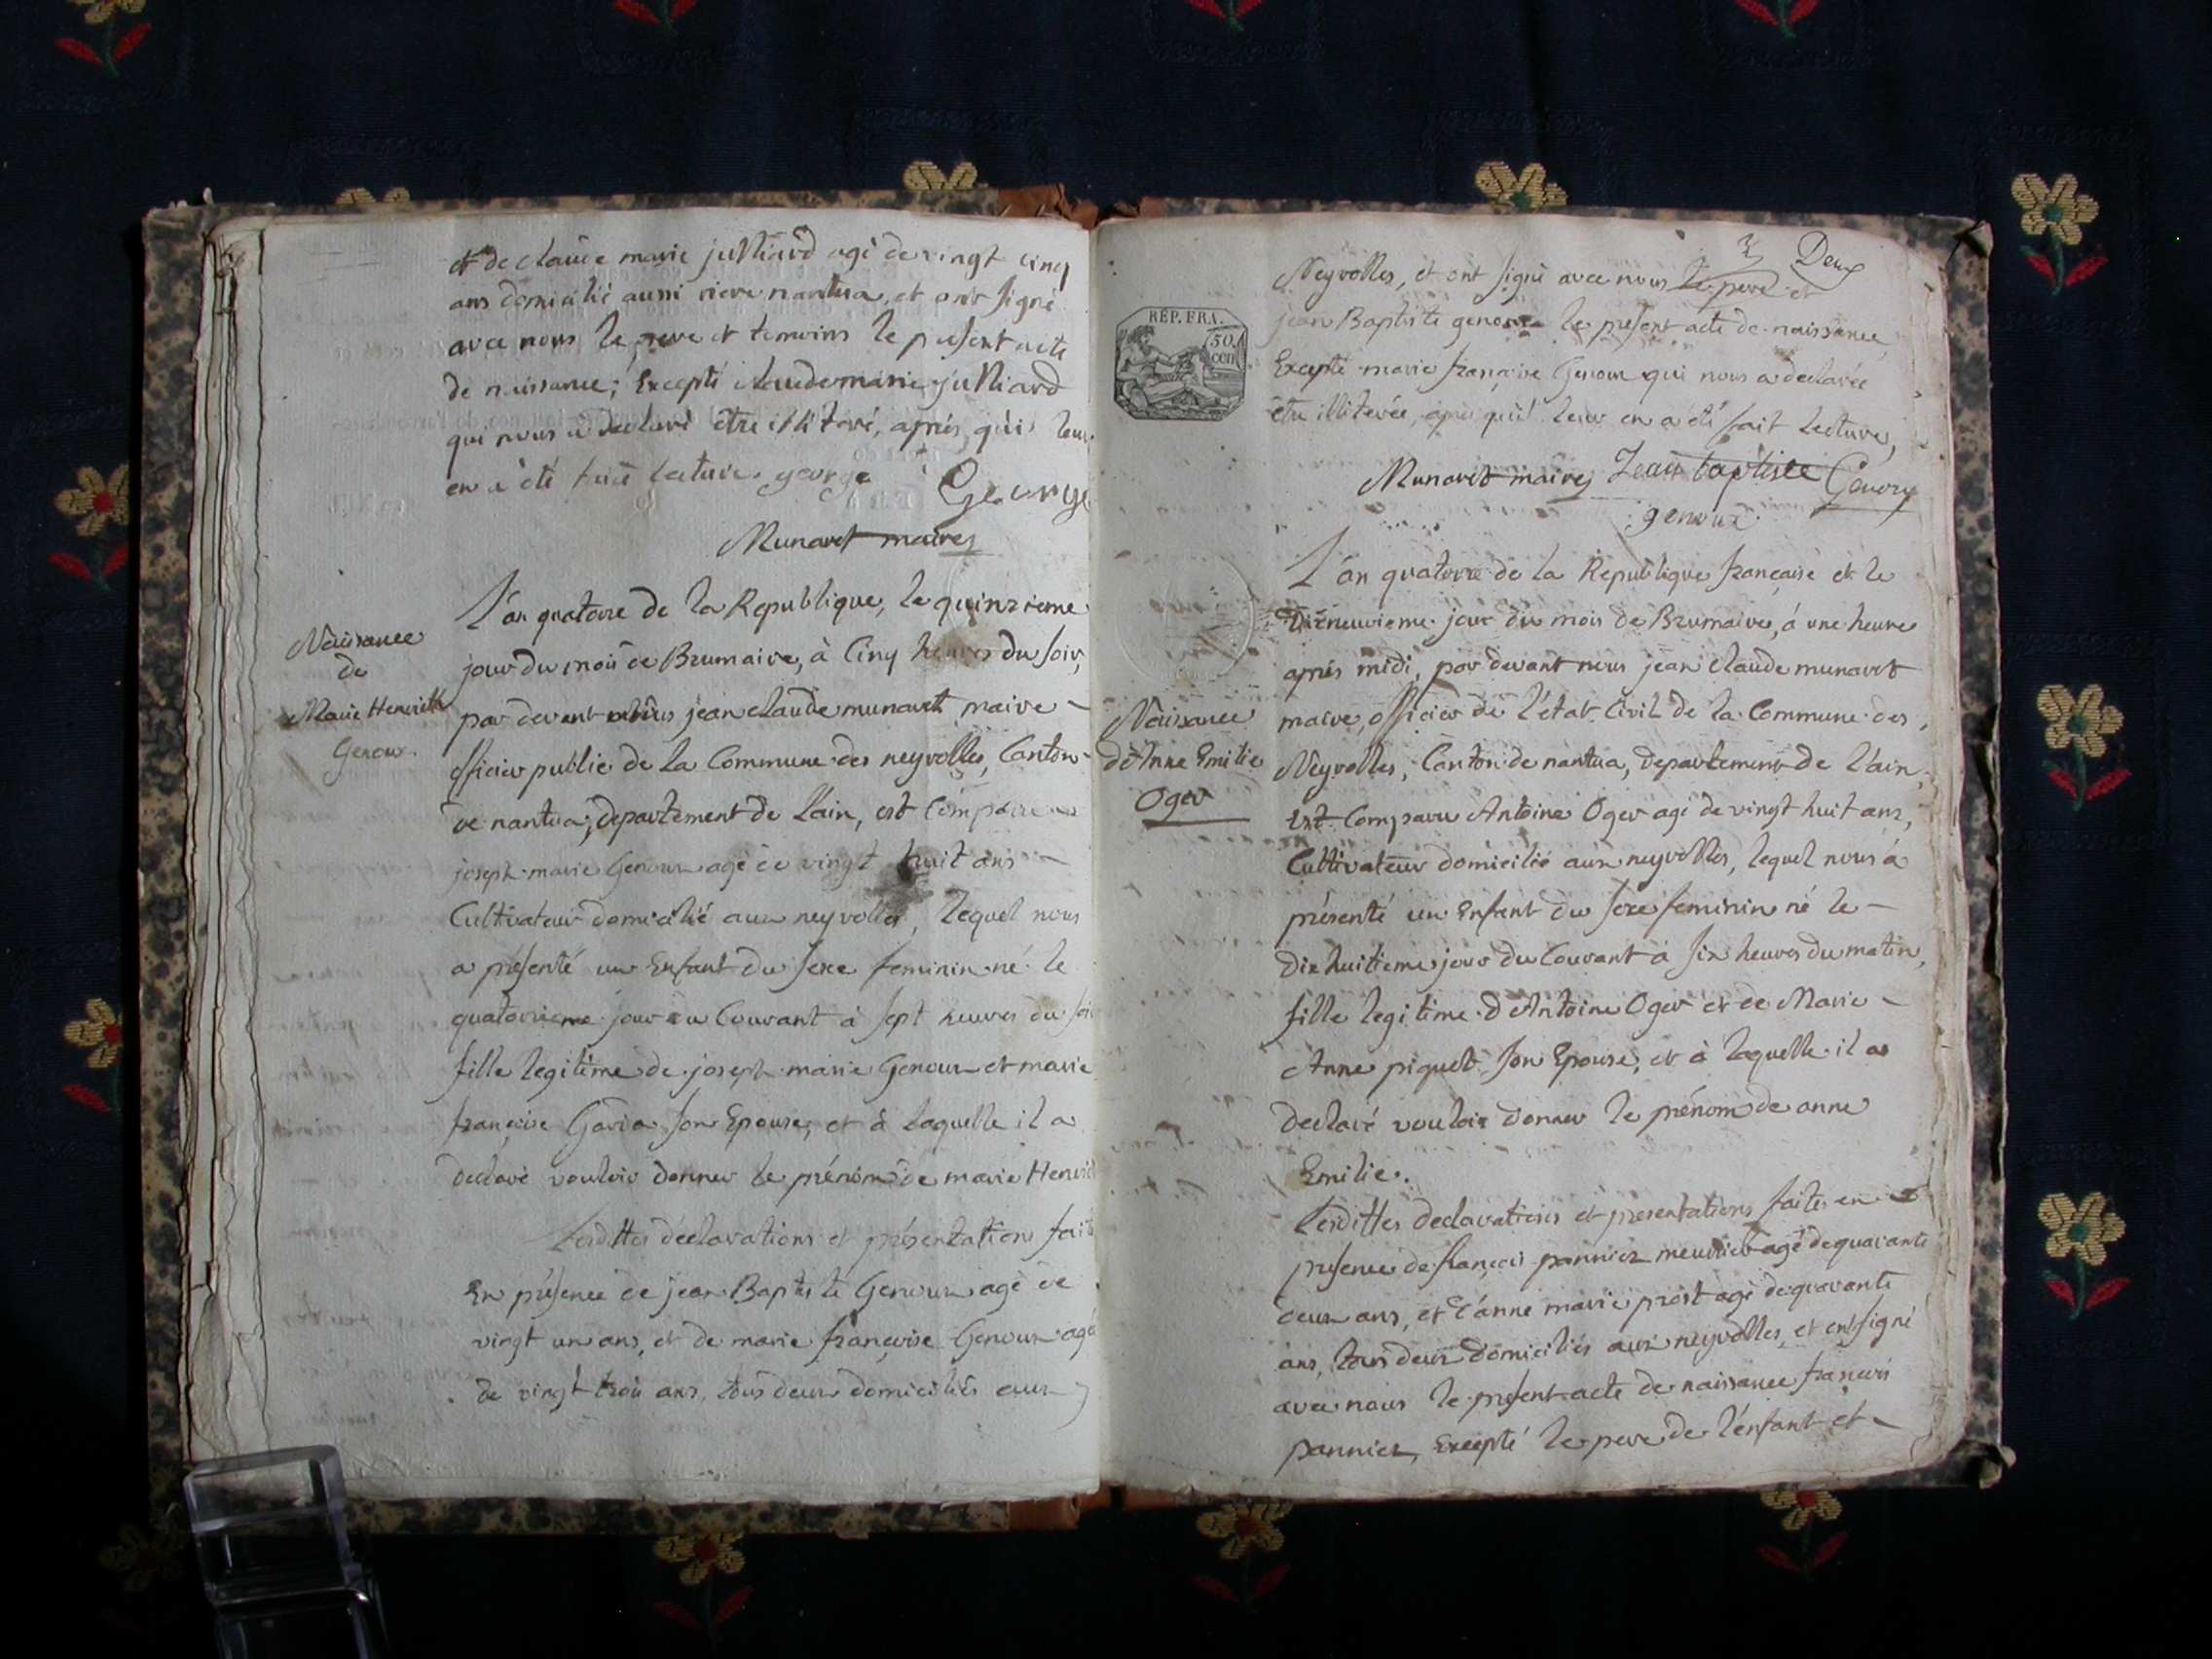 et de claude marie julliard agé de vingt cinq
ans domicilié aussi riere nantua, et ont signé
avec nous le pere et temoins le present acte
de naissance; Excepté claude marie julliard
qui nous a declaré être illiteré, après qu'il leur
en a été fait lecture. george George
Munaret maire
Naissance
de
Marie Henriette
Genoux.
L'an quatorze de la Republique, le quinzieme
jour du mois de Brumaire, à Cinq heures du soir,
par devant nous jean claude munaret maire
officier public de la Commune des neyrolles, Canton
de nantua, departement de l'ain, est Comparu
joseph marie Genoux agé de vingt huit ans
Cultivateur domicilié aux neyrolles, lequel nous
a présenté un Enfant du sexe feminin né le
quatorzieme jour du Courant à sept heures du soir
fille legitime de joseph marie Genoux et marie
françoise Gavia son Epouse, et à laquelle il a
declaré vouloir donner le prénom de marie Henriet
Lesdittes déclarations et présentations faite
En présence de jean Baptiste Genoux agé de
vingt un ans, et de marie françoise Genoux agé
de vingt trois ans, tous deux domiciliés aux
Deux
Neyrolles, et ont signé avec nous le pere et
REP. FRA.
50
cen
jean Baptiste genoux le present acte de naissance,
Excepté marie françoise Genoux qui nous a declarée
être illiterée, après qu'il leur en a été fait lecture,
Munaret maire Jean baptiste Genoux
genoux
L'an quatorze de la Republique française et le
Dixneuvieme jour du mois de Brumaire, à une heure
après midi, par devant nous jean claude munaret
Naissance
d'Anne Emilie
Oger
maire, officier de l'état Civil de la Commune des
Neyrolles, Canton de nantua, departement de l'ain,
Est Comparu Antoine Oger agé de vingt huit ans,
Cultivateur domicilié aux neyrolles, lequel nous a
présenté un Enfant du sexe feminin né le
dix huitieme jour du Courant à six heures du matin,
fille legitime d'Antoine Oger et de Marie
Anne piquet son Epouse, et à laquelle il a
declaré vouloir donner le prénom de anne
Emilie.
Lesdittes declarations et presentations faites en
presence de françois pannier meunier agé de quarante
deux ans, et d'anne marie prost agé de quarante
ans, tous deux domiciliés aux neyrolles, et ont signé
avec nous le present acte de naissance françois
pannier, Excepté le pere de l'enfant et